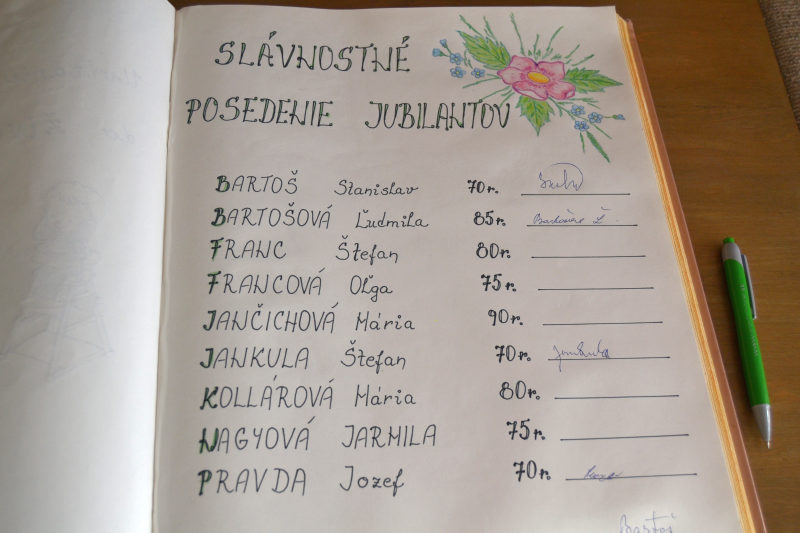 SLÁVNOSTNÉ
POSEDENIE JUBILANTOV
BARTOŠ Stanislav 70r.
BARTOŠOVÁ Ľudmila 85r. Bartošová Ľ.
FRANC Štefan 80r.
FRANCOVÁ Oľga 75r.
JANČICHOVÁ Mária 90r.
JANKULA Štefan 70r.
KOLLÁROVÁ Mária 80r.
NAGYOVÁ JARMILA 75r.
PRAVDA Jozef 70r.